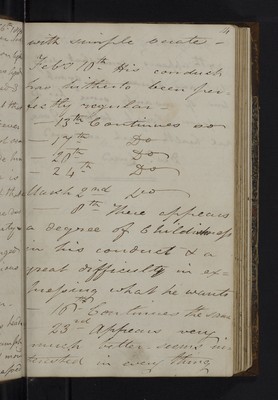 with simple cerate -
Feby 10th His conduct
has hitherto been per-
fectly regular -
- 13th Continues so
- 17th Do
- 20th Do
- 24th Do
March 2nd Do
- 8th There appears
a degree of Childishness
in his conduct & a
great difficulty in ex-
pressing what he wants
- 16th Continues the same
23rd Appears very
much better seems in-
terested in every thing